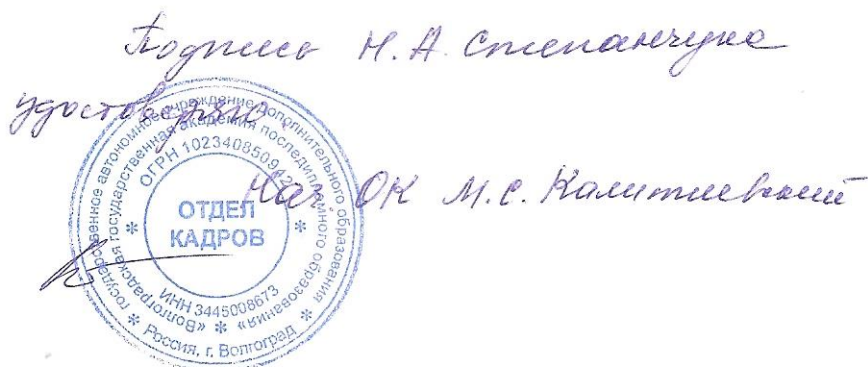 Подпись Н.А. Степанчука
удостоверяю
Нач. ОК М.С. Калитиевский
государственное автономное учреждение дополнительного образования
«Волгоградская государственная академия последипломного образования»
ОГРН 102340850942
ОТДЕЛ
КАДРОВ
ИНН 3445008673
Россия, г. Волгоград